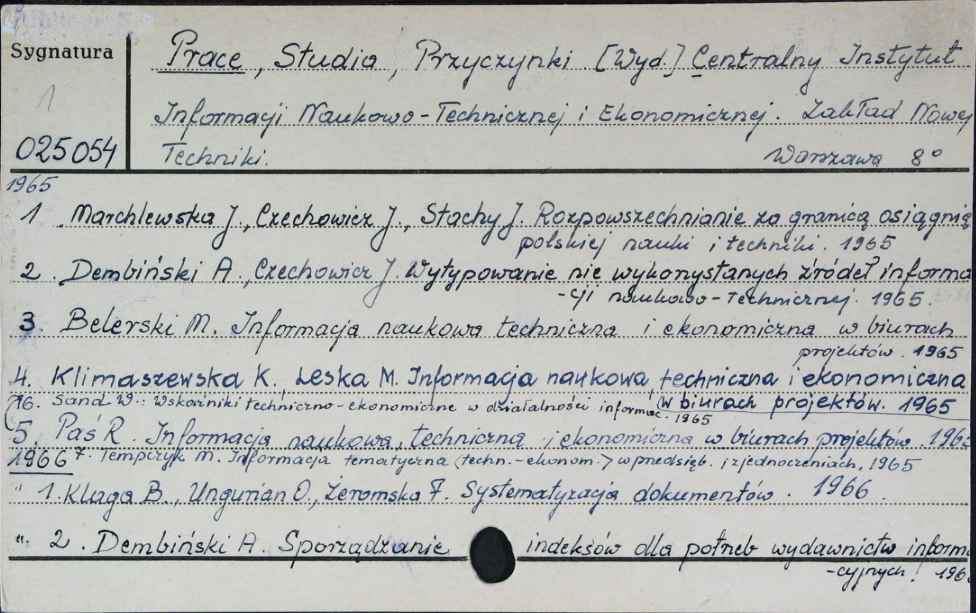 Sygnatura
1
025054
Prace, Studia, Przyczynki [Wyd.] Centralny Instytut
Informacji Naukowo-Technicznej i Ekonomicznej. Zakład Nowej
Techniki. Warszawa 8°
1965
1. Marchlewska J., Czechowicz J., Stachy J. Rozpowszechnianie za granicą osiągnię
polskiej nauki i techniki. 1965
2. Dembiński A., Czechowicz J. Wytypowanie nie wykonystanych źródeł informa
-cji naukowo-technicznej. 1965.
3. Belerski M. Informacja naukowa techniczna i ekonomiczna w biurach
projektów. 1965
4. Klimaszewska K., Leska M. Informacja naukowa, techniczna i ekonomiczna
w biurach projektów. 1965
6. Sand W.: Wskaźniki techniczno-ekonomiczne w działalności informac. 1965
5. Paś R. Informacja naukowa, techniczna i ekonomiczna w biurach projektów. 196
7. Tempczyk M. Informacja tematyczna (techn.-ekonom.) w przedsięb. i zjednoczeniach, 1965
1966
" 1. Kluga B., Ungurian O., Żeromska F. Systematyzacja dokumentów. 1966.
" 2. Dembiński A. Sporządzanie indeksów dla potrzeb wydawnictw inform
-cyjnych! 196